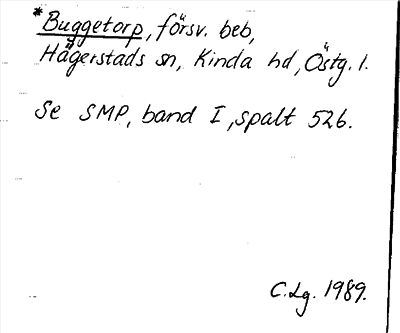 *Buggetorp, försv. beb,
Hägerstads sn, Kinda hd, Östg. l.
Se SMP, band I, spalt 526.
C.Lg. 1989.